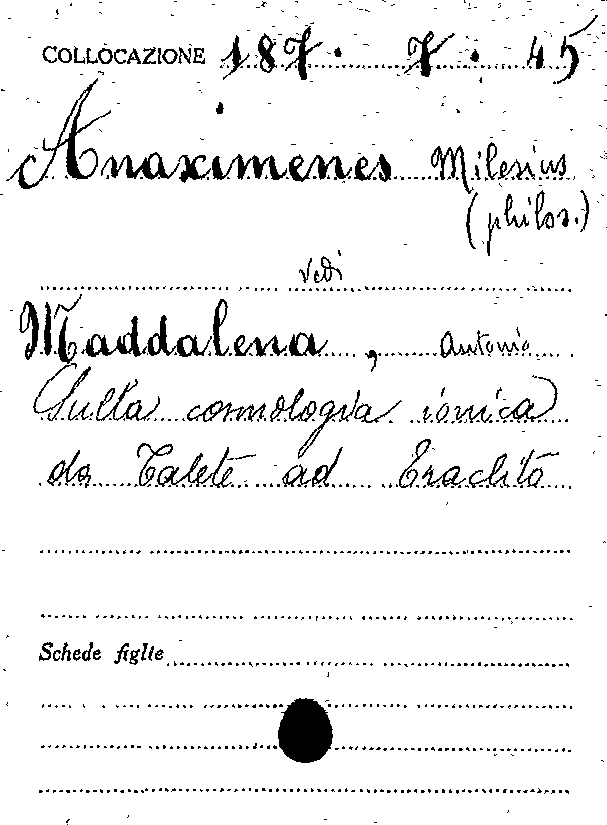 COLLOCAZIONE 187. 7. 45
Anaximenes Milesius
(philos.)
vedi
Maddalena, Antonio
Sulla cosmologia ionica
da Talete ad Eraclito
Schede figlie